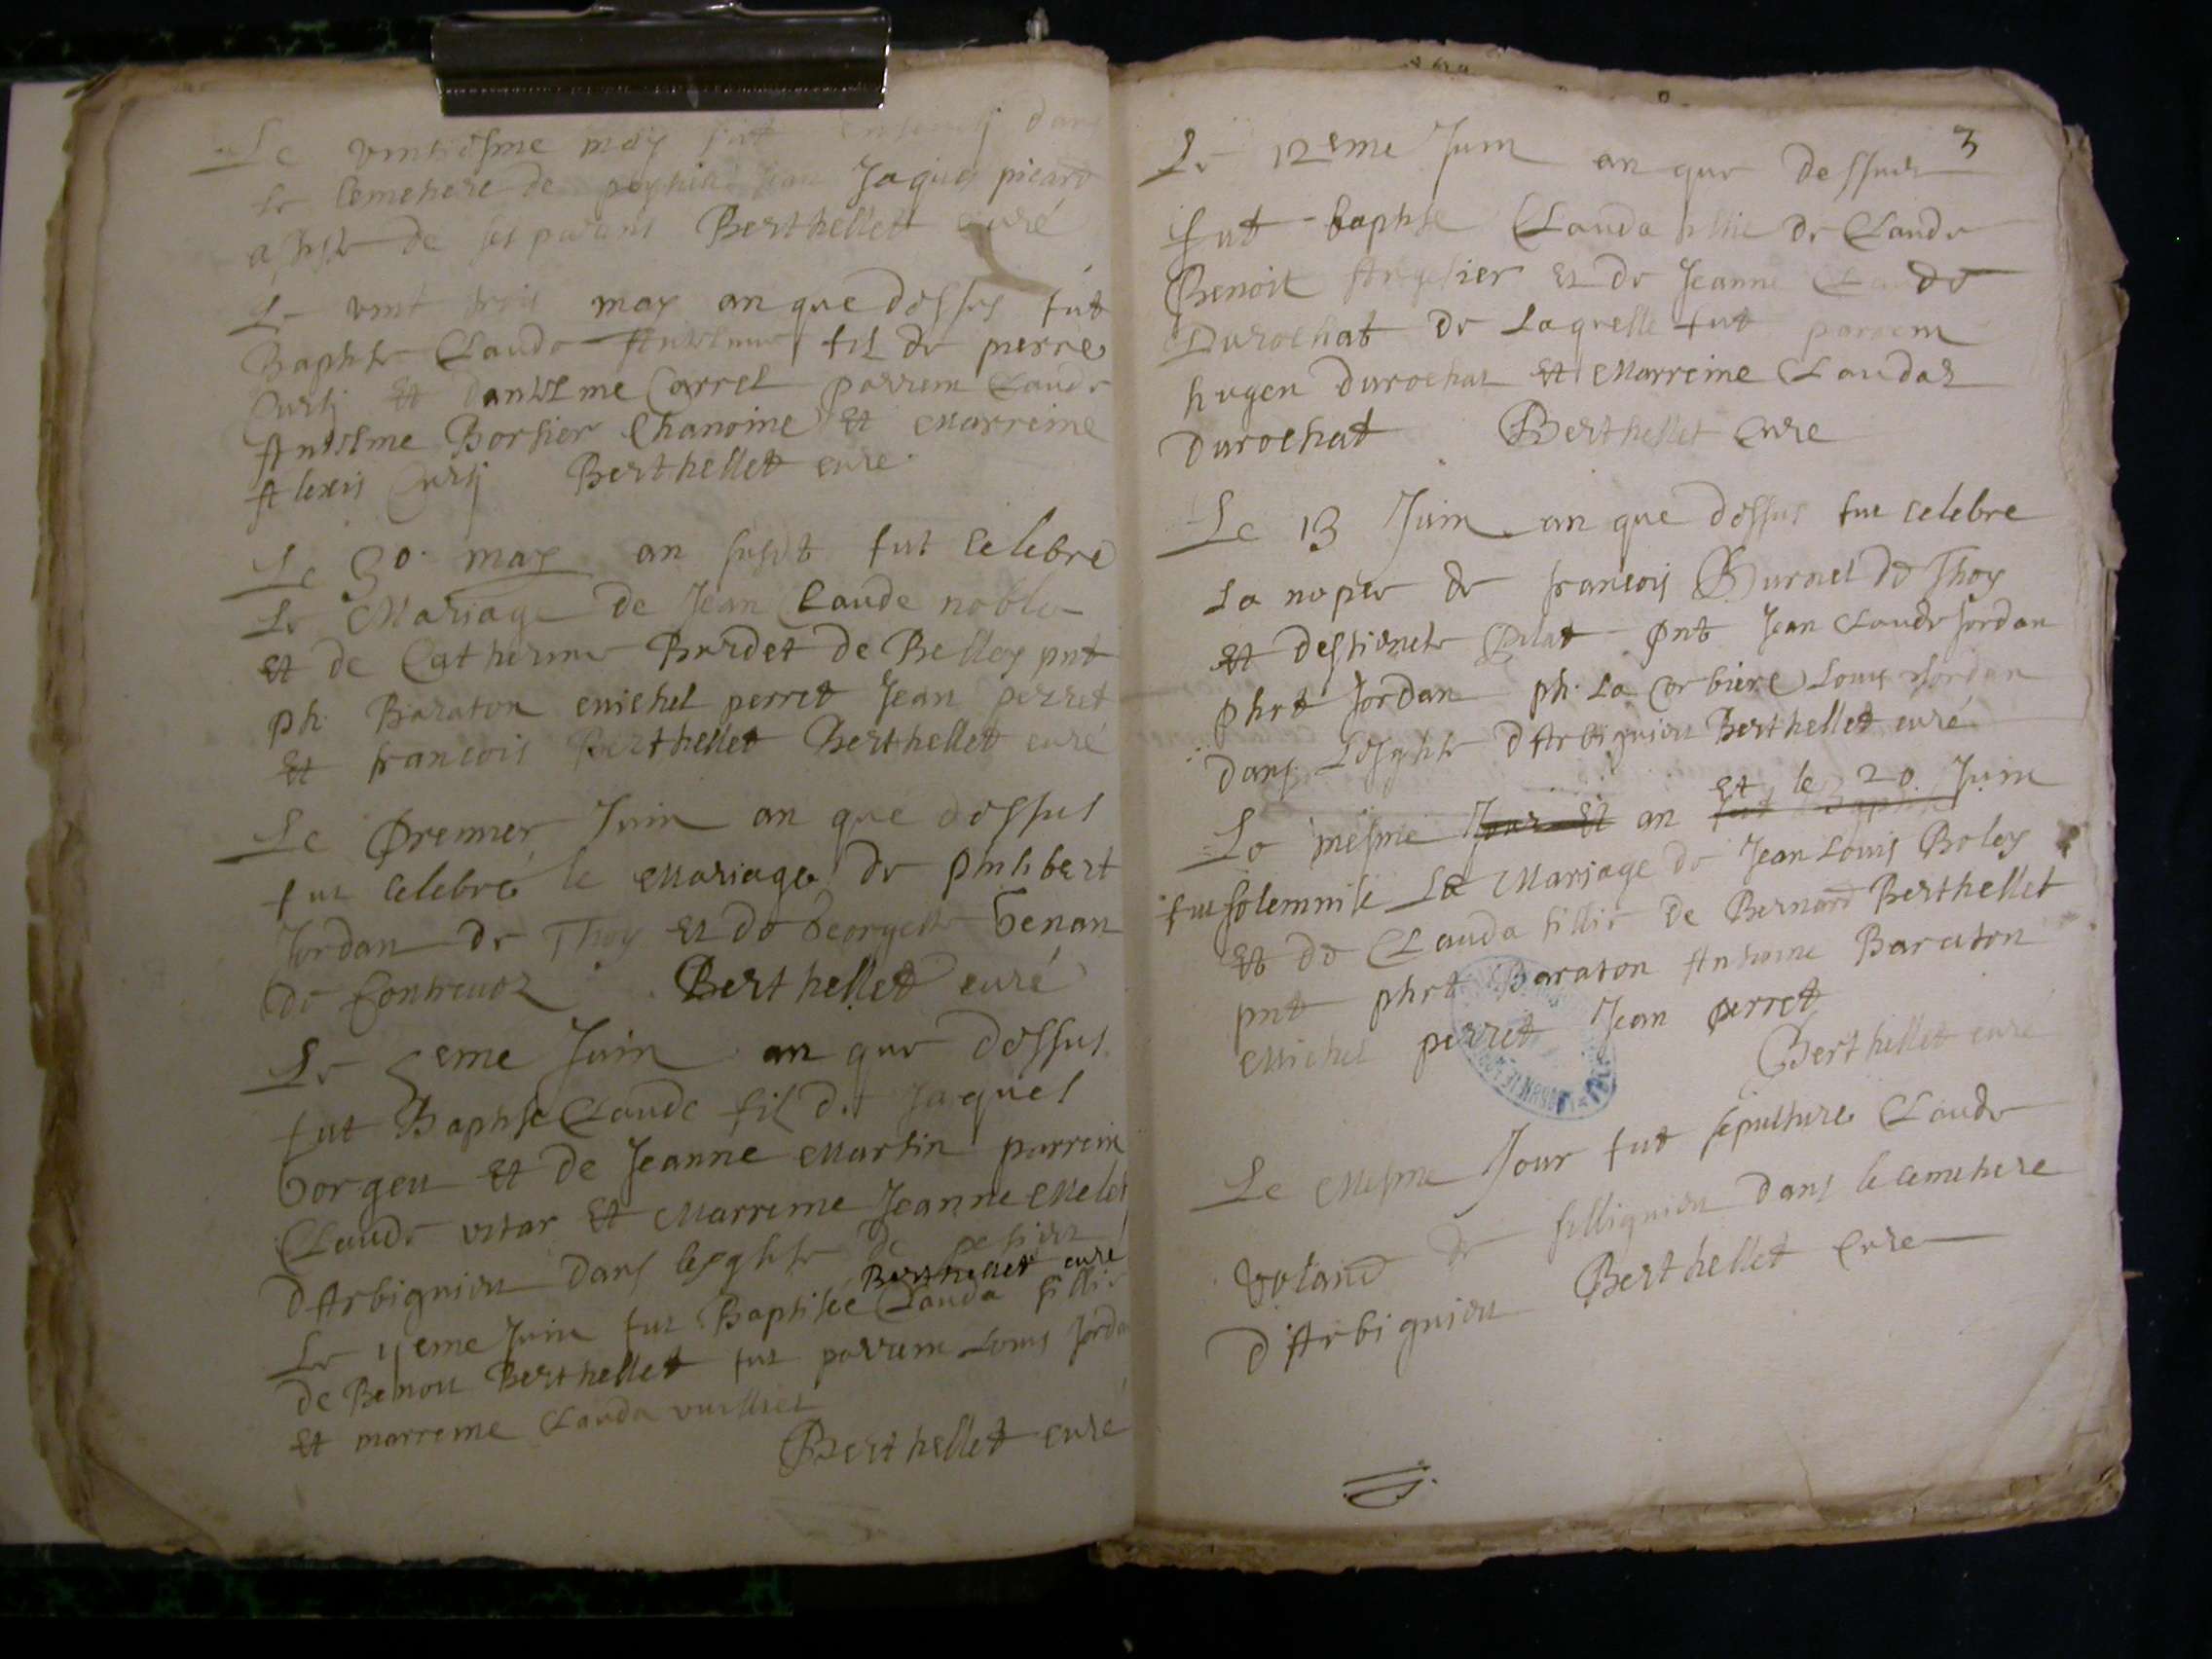 Le vintiesme may fut ensevely dans
le cemetiere de peyrieu Jean Jaques picard
assiste de ses parans Berthellet curé
Le vint trois may an que dessus fut
Baptise Claude Anthelme fil de pierre
Curtj et danthelme Carrel parrein Claude
Anthelme Borsier Chanoine et Marreine
Alexis Curtj Berthellet cure
Le 30 may an susdt fut celebré
le Mariage de Jean Claude noble
et de Catherine Burdet de Belley pnt
ph. Baraton michel perret Jean perret
et francois Berthellet Berthellet curé
Le premier Juin an que dessus
fut celebré le mariage de philibert
Jordan de Thoy et de Georgette Genan
de Contrevoz Berthellet curé
Le 5eme Juin an que dessus
fut Baptise Claude fil de Jaques
Gorgeu et de Jeanne Martin parrein
Claude vitar et Marreine Jeanne Melot
d'Arbignieu dans lesglise de
Berthellet curé
Le 11eme Juin fut Baptisée Clauda fillie
de Benoit Berthellet fut parrein Louis Jordan
et marreine Clauda vuilliet
Berthellet curé
3
Le 12eme Juin an que dessus
fut baptise Clauda fillie de Claude
Benoit et de Jeanne Claude
Durochat de laquelle fut parrein
hugen Durochat et Marreine Claudaz
durochat Berthellet cure
Le 13 Juin an que dessus fut celebre
la nopce de francois Burnel de Thoy
et destienete Pilat pnt Jean Claude Jordan
phrt Jordan ph. la Corbiere Louis Jordan
dans lesglise d'Arbignieu Berthellet curé
Le mesme Jour et an et le 20 Juin
fut solemnise le Mariage de Jean Louis Boley
et de Clauda fillie de Bernard Berthellet
pnt phrt Baraton Anthoine Baraton
Michel perret Jean perret
Berthellet curé
Le Mesme Jour fut sepulture Claude
Voland de fillignieu dans le cemetiere
d'Arbignieu Berthellet Cure